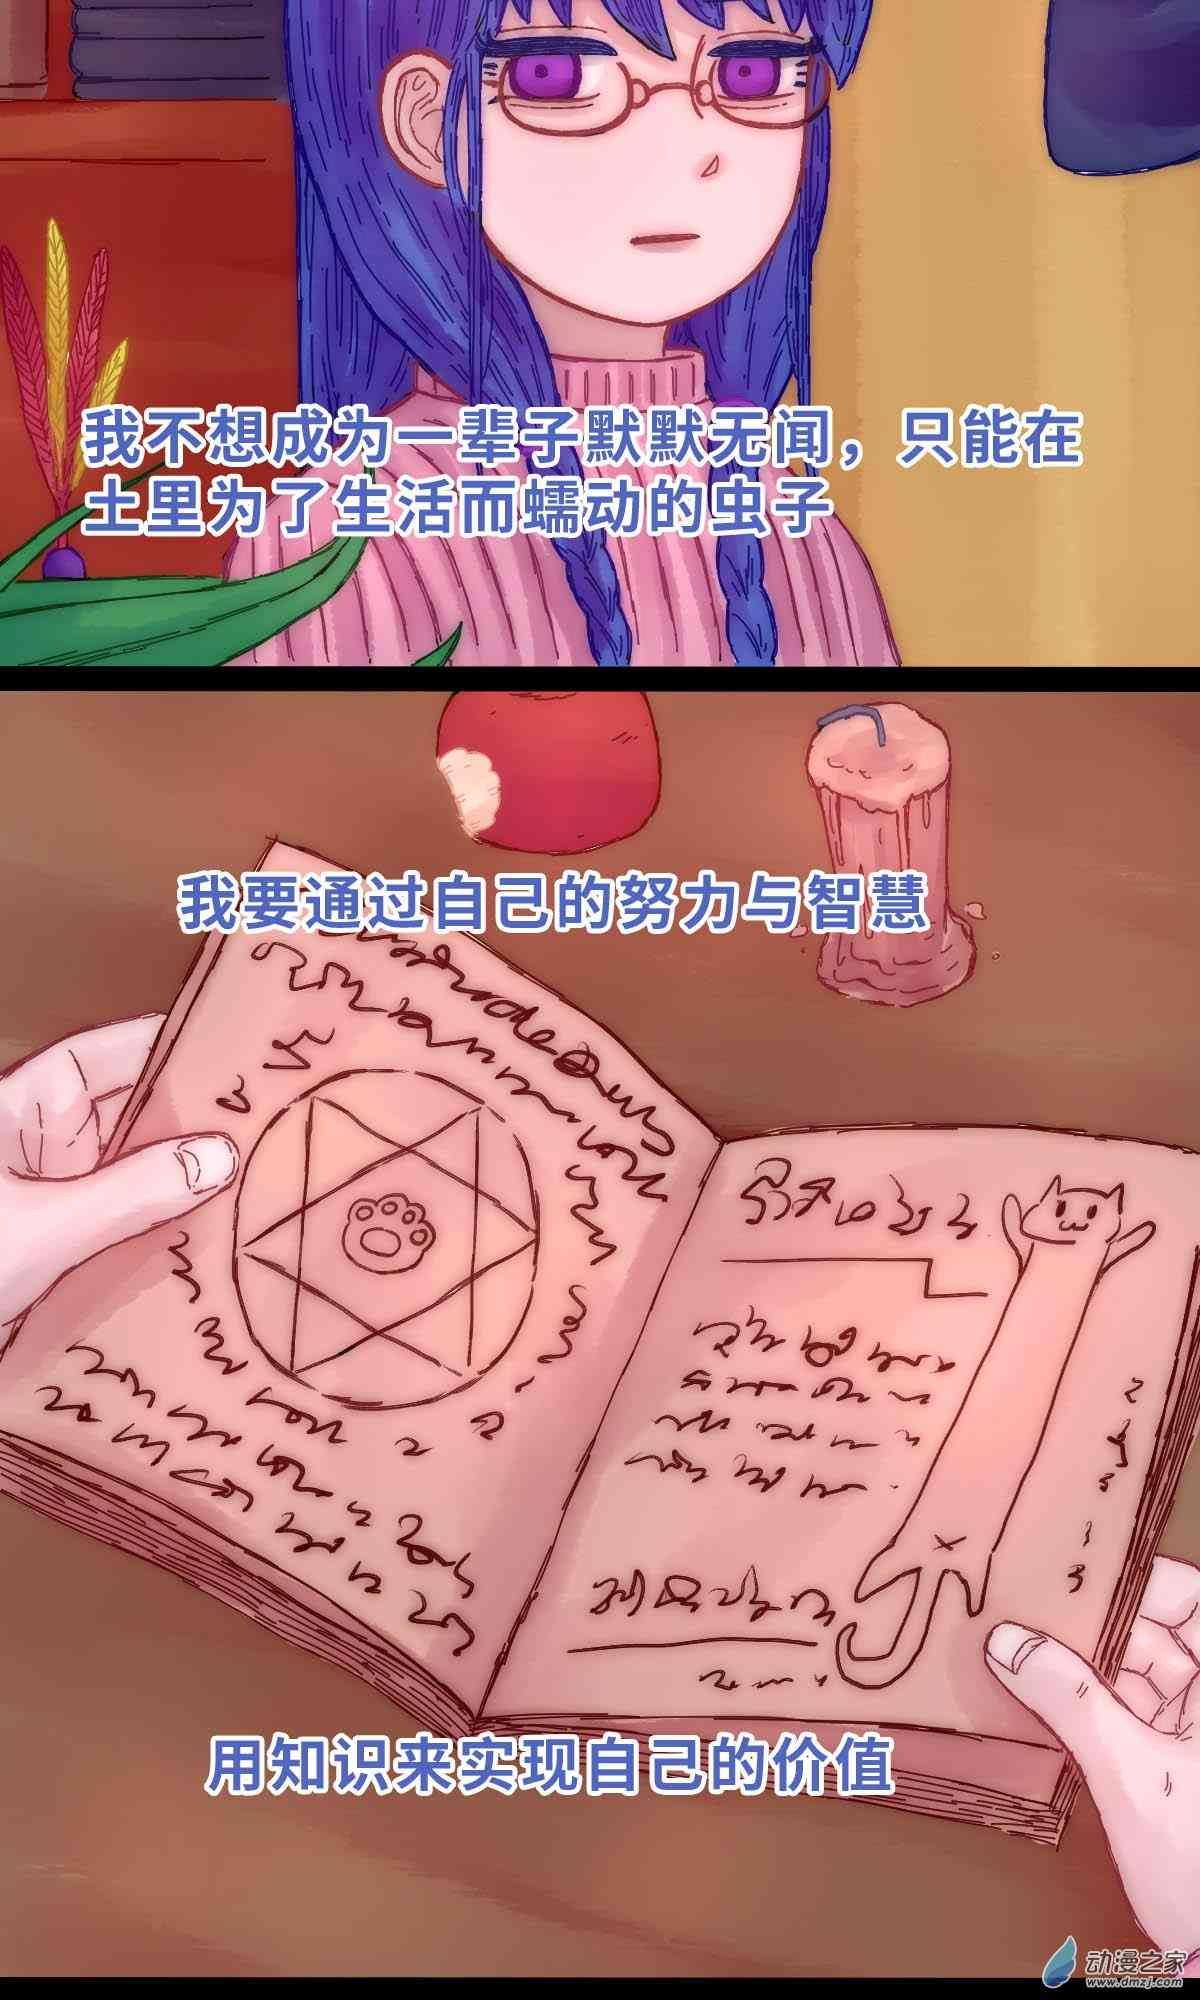 我不想成为一辈子默默无闻，只能在
土里为了生活而蠕动的虫子
我要通过自己的努力与智慧
用知识来实现自己的价值
动漫之家
www.dmzj.com